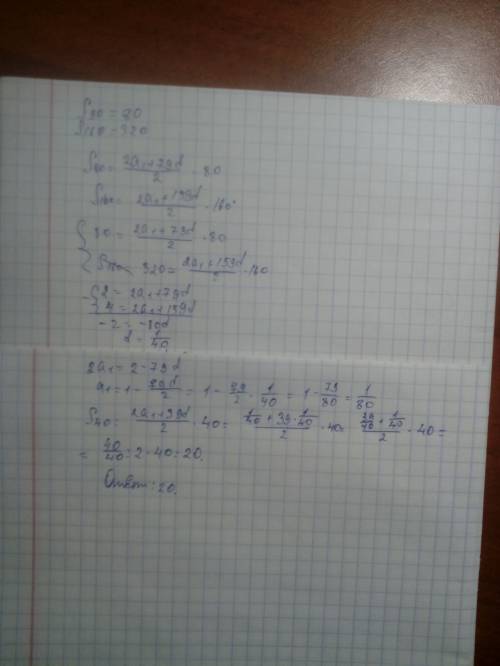 S80 = 80
S160 = 320
S80 = (2a1+79d)/2 · 80
S160 = (2a1+159d)/2 · 160
{ 80 = (2a1+79d)/2 · 80
320 = (2a1+159d)/2 · 160
- { 2 = 2a1+79d
4 = 2a1+159d
-2 = -80d
d = 1/40
2a1 = 2-79d
a1 = 1 - 79d/2 = 1 - 79/2 · 1/40 = 1 - 79/80 = 1/80
S40 = (2a1+39d)/2 · 40 = (1/40 + 39·1/40)/2 · 40 = (39/40 + 1/40)/2 · 40 =
= 40/40 : 2 · 40 = 20.
Ответ: 20.